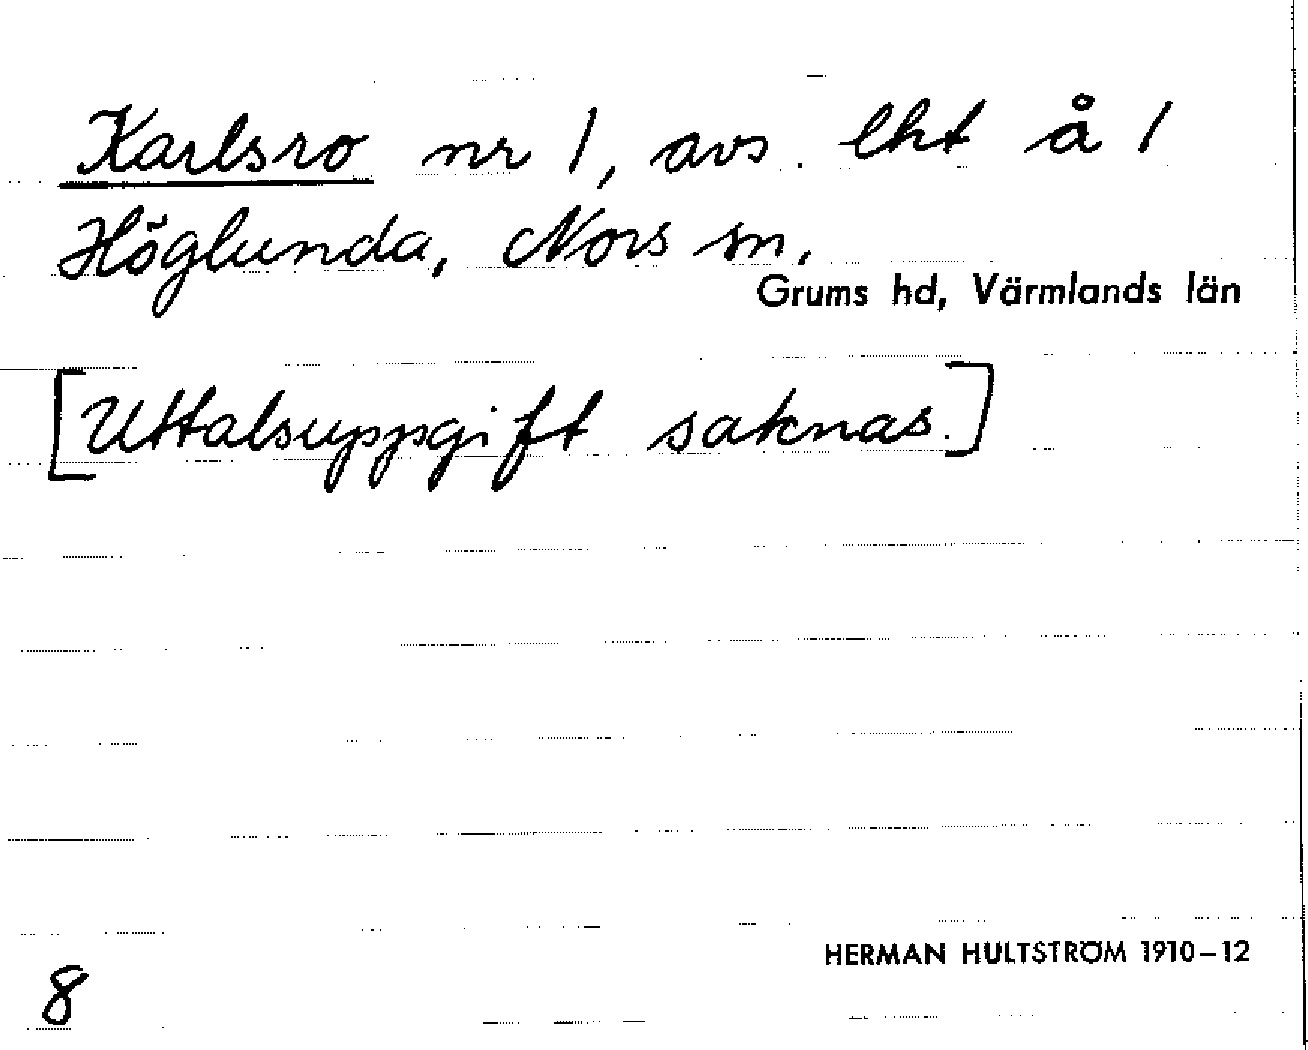 Karlsro nr 1, avs. lht å 1
Höglunda, Nors sn,
Grums hd, Värmlands län
[Uttalsuppgift saknas.]
HERMAN HULTSTRÖM 1910–12
8